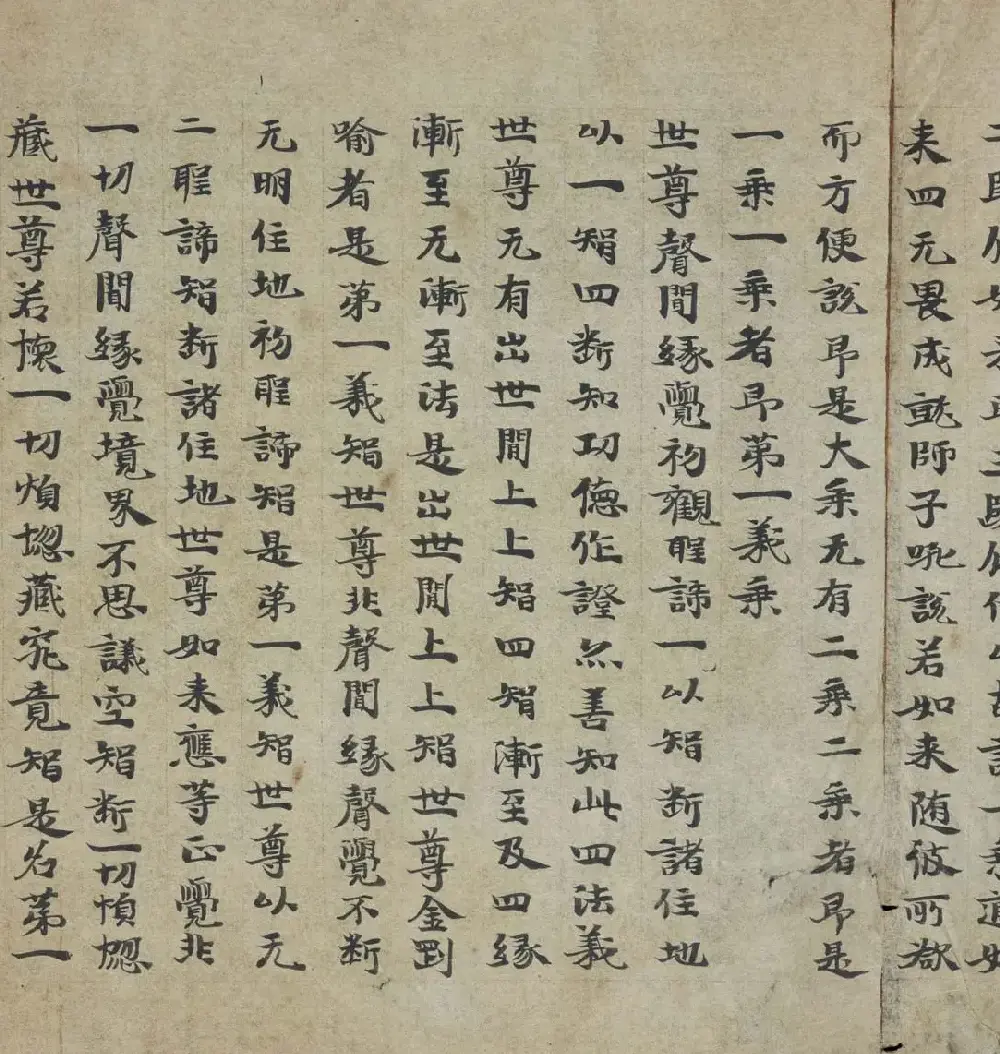 来四无畏成就師子吼說若如来随彼所欲
而方便說即是大乘无有二乘二乘者即是
一乘一乘者即第一義乘
世尊聲聞緣覺初觀聖諦一以智断諸住地
以一智四断知功德作證亦善知此四法義
世尊无有出世間上上智四智漸至及四緣
漸至无漸至法是出世間上上智世尊金剛
喻者是第一義智世尊非聲聞緣聲覺不断
无明住地初聖諦智是第一義智世尊以无
二聖諦智断諸住地世尊如来應等正覺非
一切聲聞緣覺境界不思議空智断一切煩惱
藏世尊若懷一切煩惱藏究竟智是名第一